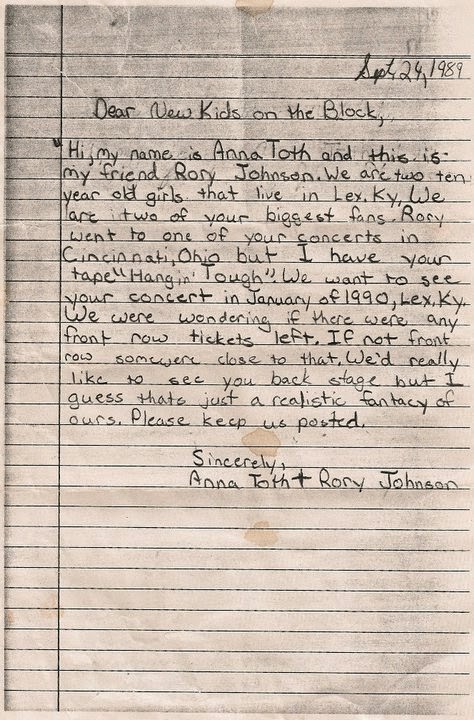 Sept. 24, 1989
Dear New Kids on the Block,
"Hi, my name is Anna Toth and this is
my friend Rory Johnson. We are two ten
year old girls that live in Lex, Ky. We
are two of your biggest fans. Rory
went to one of your concerts in
Cincinnati, Ohio but I have your
tape "Hangin' Tough". We want to see
your concert in January of 1990, Lex, Ky.
We were wondering if there were any
front row tickets left. If not front
row somewere close to that. We'd really
like to see you back stage but I
guess thats just a realistic fantacy of
ours. Please keep us posted.
Sincerely,
Anna Toth + Rory Johnson